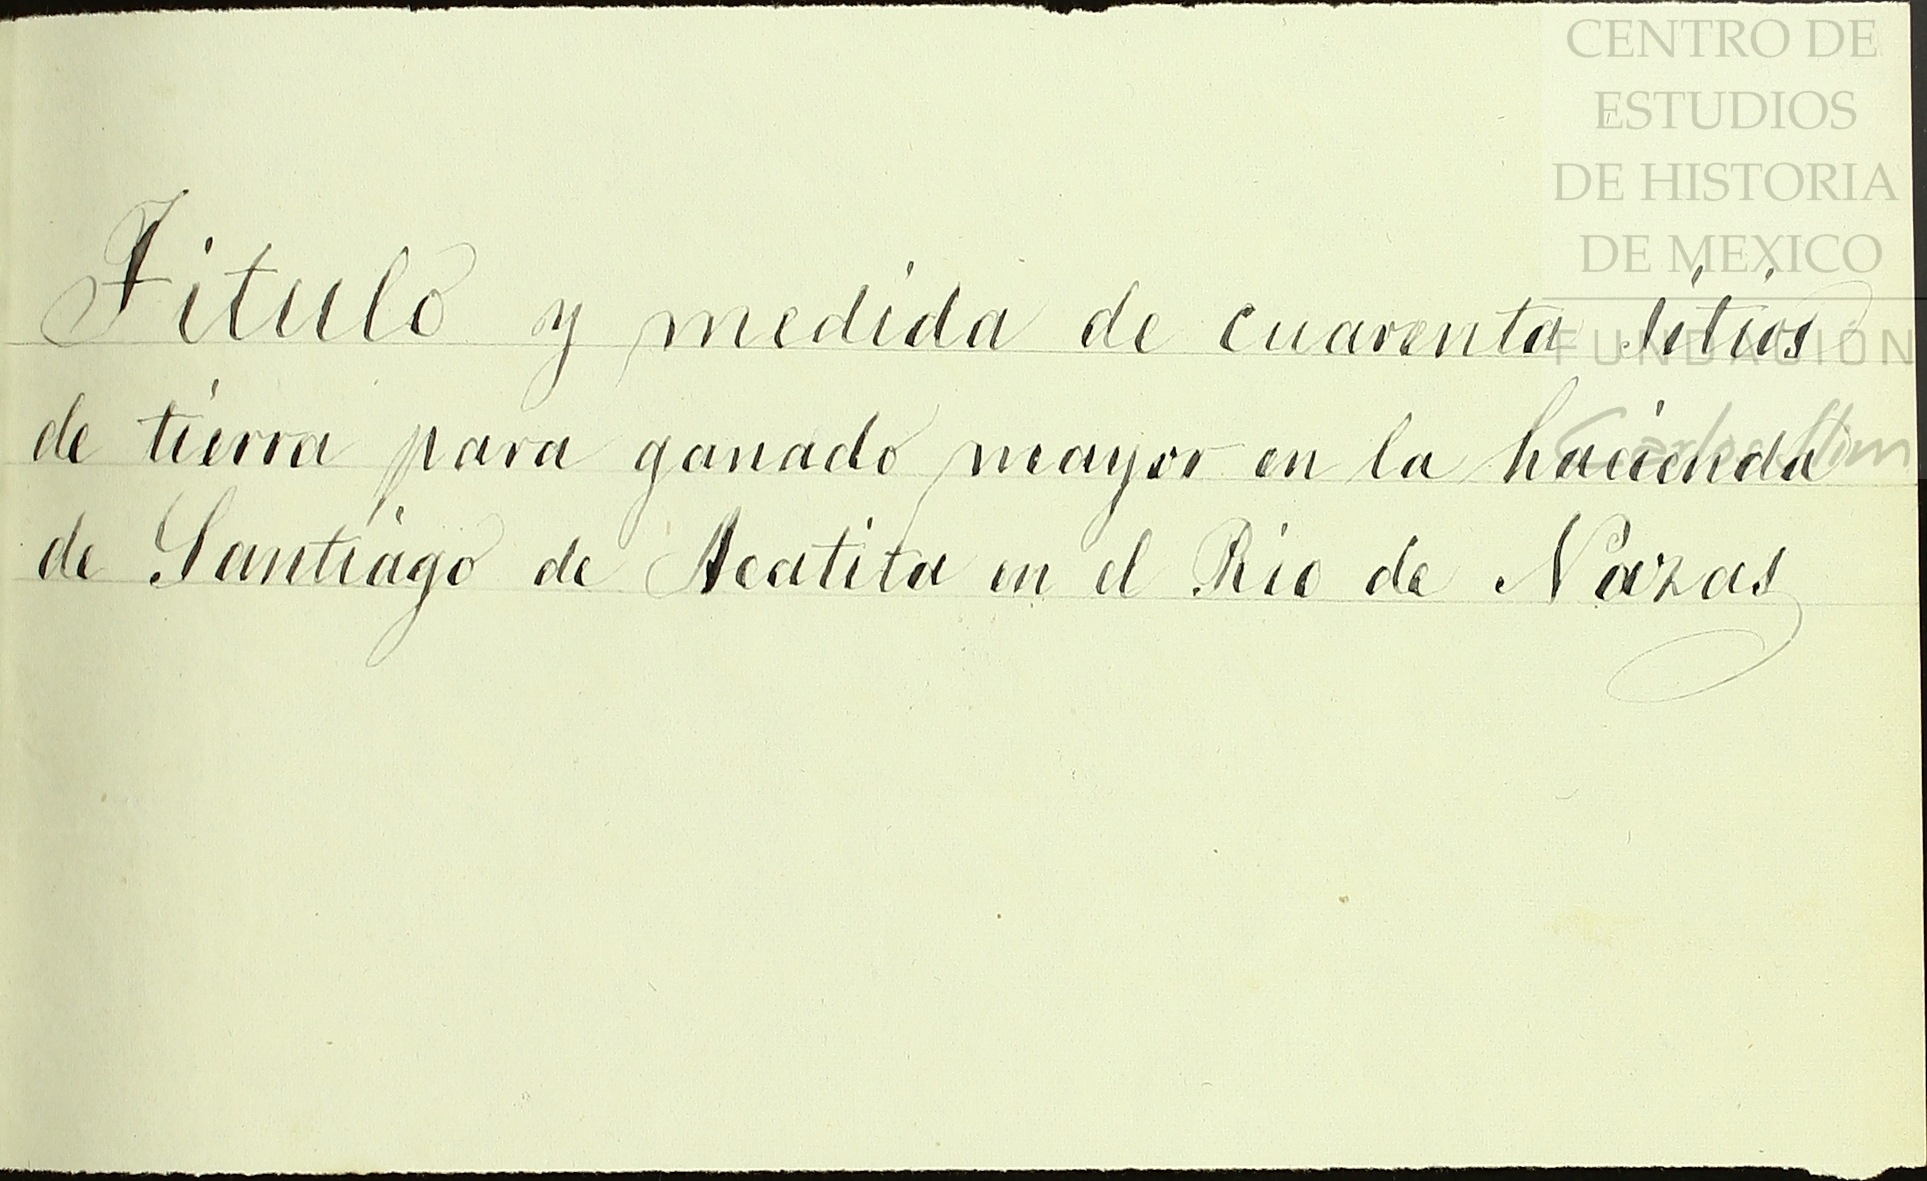 CENTRO DE
ESTUDIOS
DE HISTORIA
DE MEXICO
FUNDACION
Carlos Slim
Titulo y medida de cuarenta sitios
de tierra para ganado mayor en la hacienda
de Santiago de Acatita en el Rio de Nazas